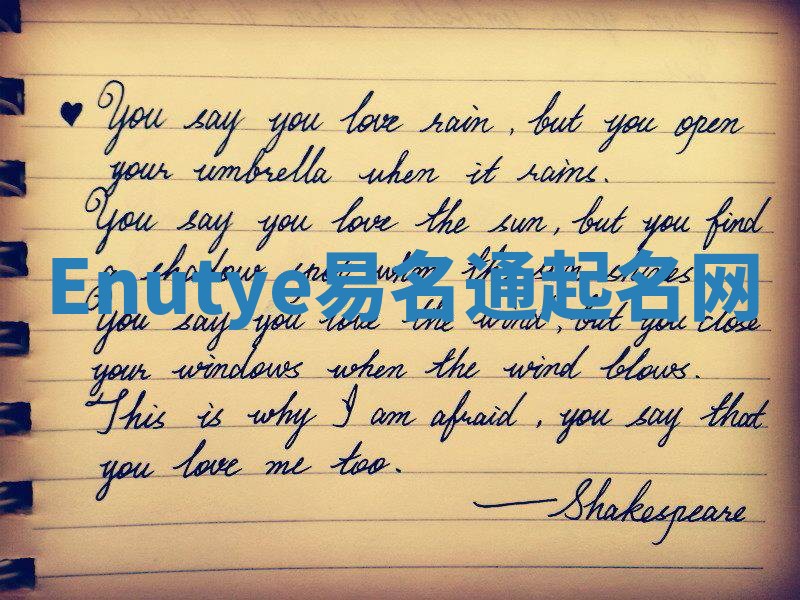 ♥ You say you love rain, but you open
your umbrella when it rains.
You say you love the sun, but you find
a shadow spot when the sun shines
Enutye易名通起名网
You say you love the wind, but you close
your windows when the wind blows.
This is why I am afraid, you say that
you love me too.
—Shakespeare